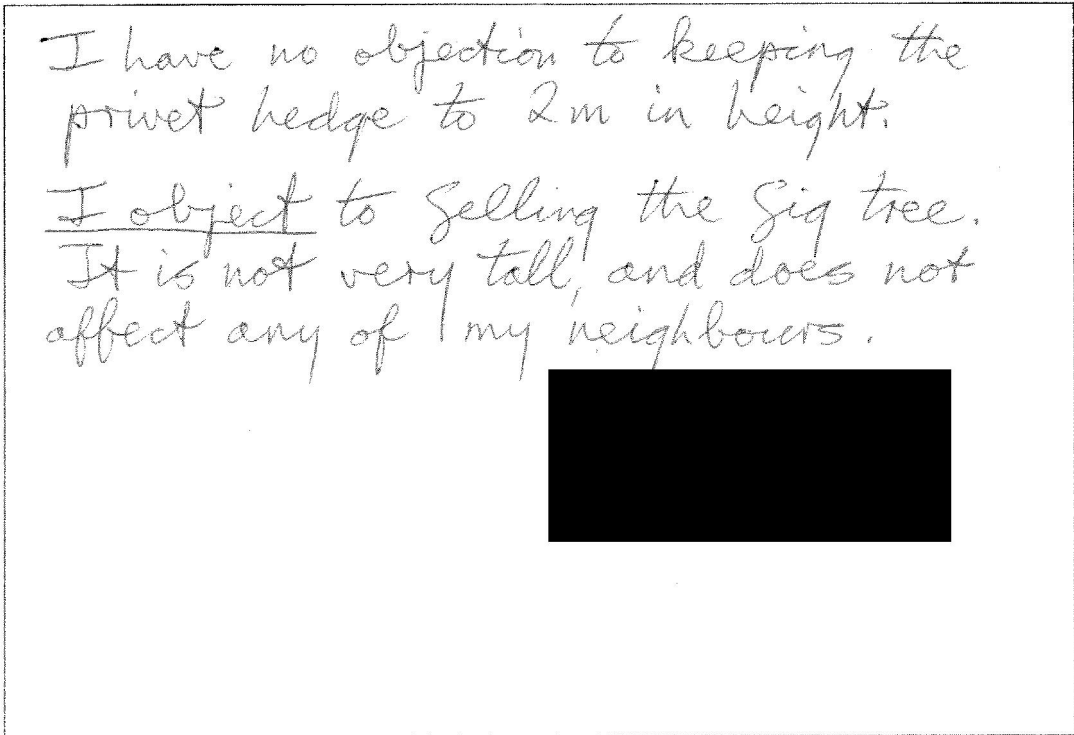 I have no objection to keeping the
privet hedge to 2m in height.
I object to felling the fig tree.
It is not very tall, and does not
affect any of my neighbours.